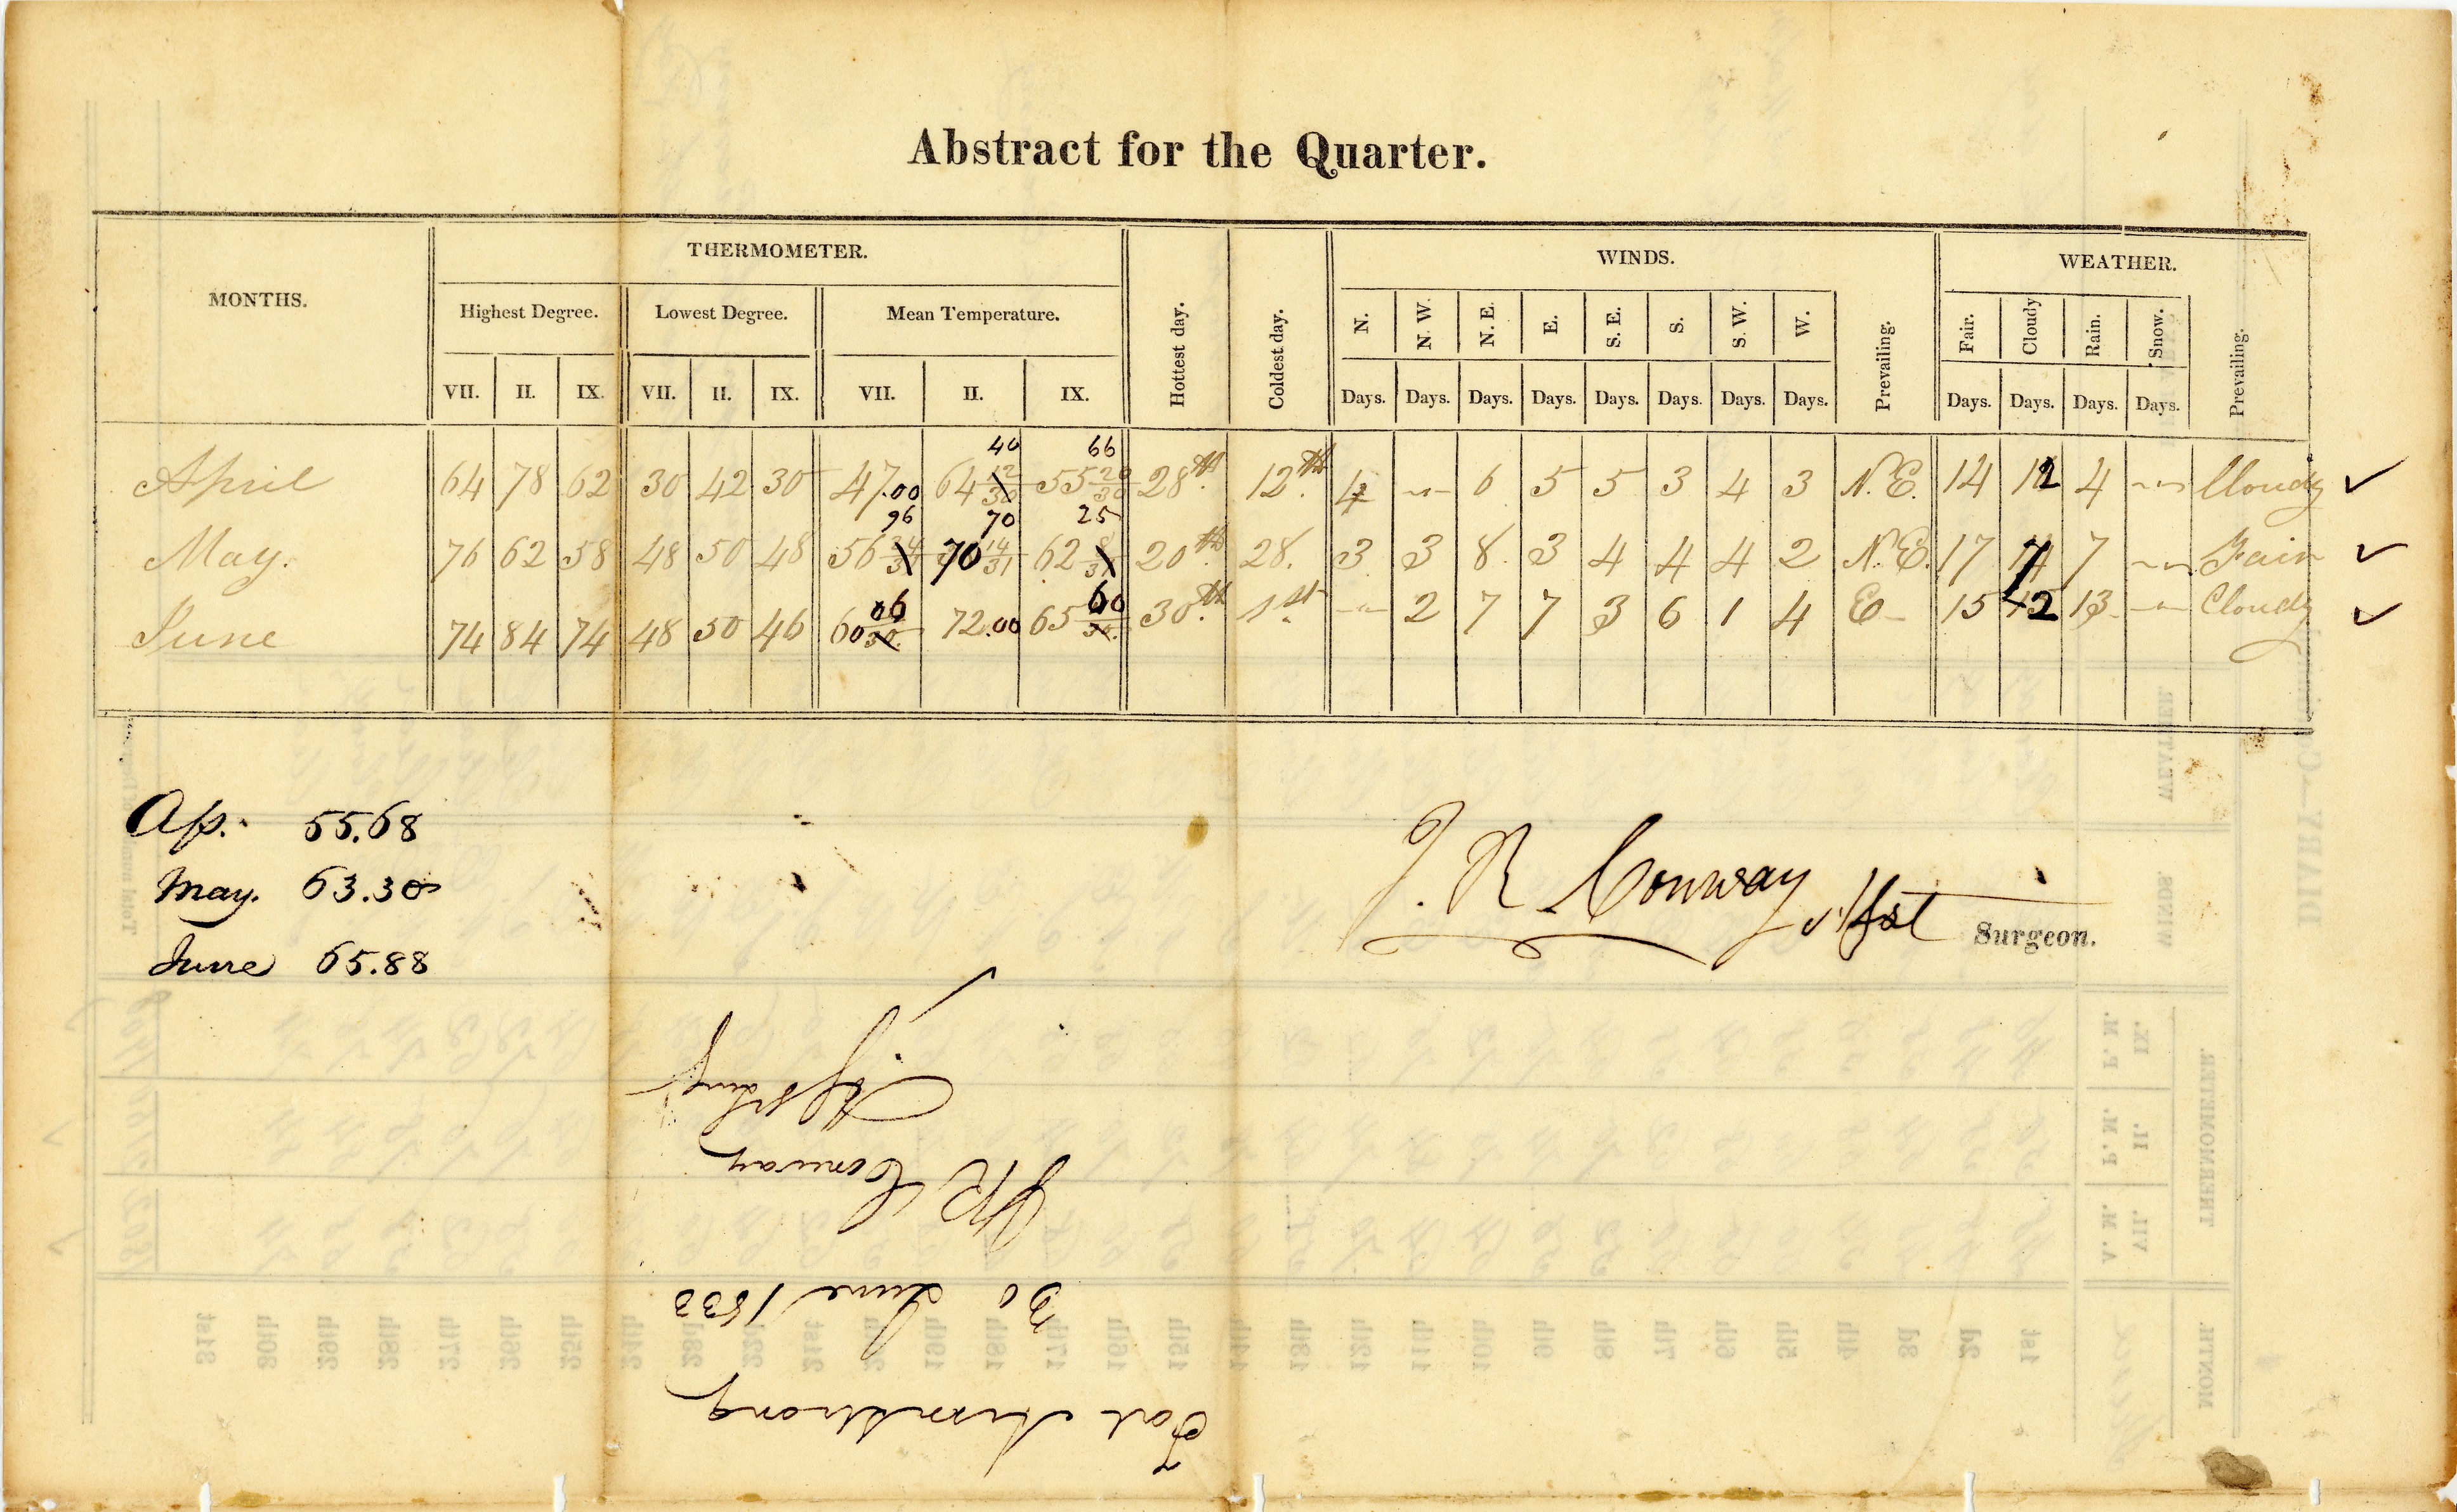 Abstract for the Quarter.
MONTHS. THERMOMETER. Hottest day. Coldest day. WINDS. WEATHER.
Highest Degree. Lowest Degree. Mean Temperature. N. N. W. N. E. E. S. E. S. S. W. W. Prevailing. Fair. Cloudy Rain. Snow. Prevailing.
VII. II. IX. VII. II. IX. VII. II. IX. Days. Days. Days. Days. Days. Days. Days. Days. Days. Days. Days. Days.
40 66
April 64 78 62 30 42 30 47.00 64 12/30 55 20/30 28th. 12th. 4 6 5 5 3 4 3 N.E. 14 12 4 Cloudy
96 70 25
May. 76 62 58 48 50 48 56 70 14/31 62 8/31 20th. 28. 3 3 8 3 4 4 4 2 N.E. 17 7 7 Fair
06 60
June 74 84 74 48 50 46 60 72.00 65 30th. 1st. 2 7 7 3 6 1 4 E 15 2 13 Cloudy
Ap. 55.68
May. 63.30
June 65.88
J. R. Conway Asst Surgeon.
Fort Armstrong
30 June 1833
J R Conway